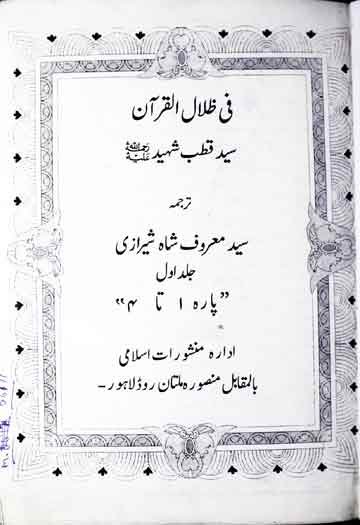 فی ظلال القرآن
سید قطب شہید رحمۃ اللہ علیہ
ترجمہ
سید معروف شاہ شیرازی
جلد اول
”پارہ ۱ تا ۴“
ادارہ منشورات اسلامی
بالمقابل منصورہ ملتان روڈ لاہور-